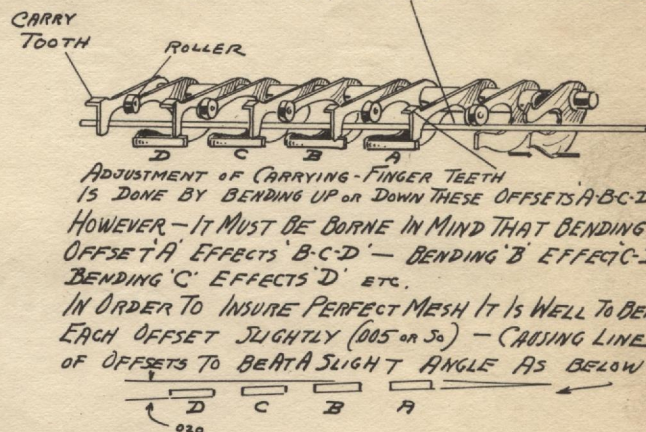 CARRY
TOOTH
ROLLER
D C B A
ADJUSTMENT OF CARRYING-FINGER TEETH
IS DONE BY BENDING UP OR DOWN THESE OFFSETS 'A-B-C-D
HOWEVER — IT MUST BE BORNE IN MIND THAT BENDING
OFFSET 'A' EFFECTS 'B-C-D' — BENDING 'B' EFFECT 'C-
BENDING 'C' EFFECTS 'D' ETC.
IN ORDER TO INSURE PERFECT MESH IT IS WELL TO BE
EACH OFFSET SLIGHTLY (.005 OR SO) — CAUSING LINE
OF OFFSETS TO BE AT A SLIGHT ANGLE AS BELOW
D C B A
.020